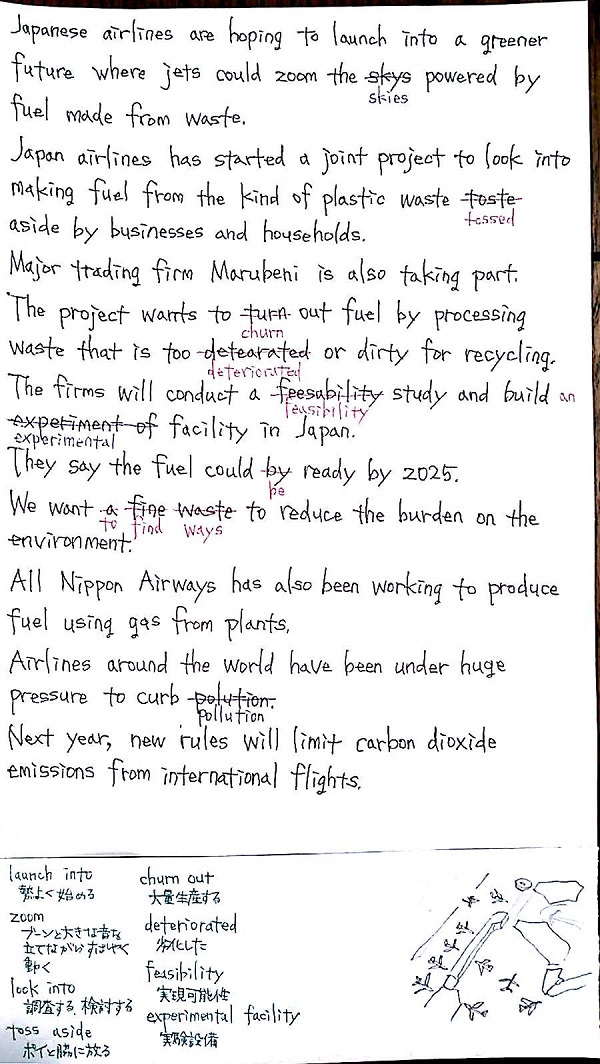 Japanese airlines are hoping to launch into a greener
future where jets could zoom the skys powered by
skies
fuel made from waste.
Japan airlines has started a joint project to look into
making fuel from the kind of plastic waste toste
tossed
aside by businesses and households.
Major trading firm Marubeni is also taking part.
The project wants to turn out fuel by processing
churn
waste that is too detearated or dirty for recycling.
deteriorated
The firms will conduct a feesability study and build an
feasibility
experiment of facility in Japan.
experimental
They say the fuel could by ready by 2025.
be
We want a fine waste to reduce the burden on the
to find ways
environment.
All Nippon Airways has also been working to produce
fuel using gas from plants.
Airlines around the world have been under huge
pressure to curb polution.
pollution
Next year, new rules will limit carbon dioxide
emissions from international flights.
launch into
勢よく始める
zoom
ブーンと大きな音を
立てながらすばやく
動く
look into
調査する、検討する
toss aside
ポイと脇に放る
churn out
大量生産する
deteriorated
劣化した
feasibility
実現可能性
experimental facility
実験設備